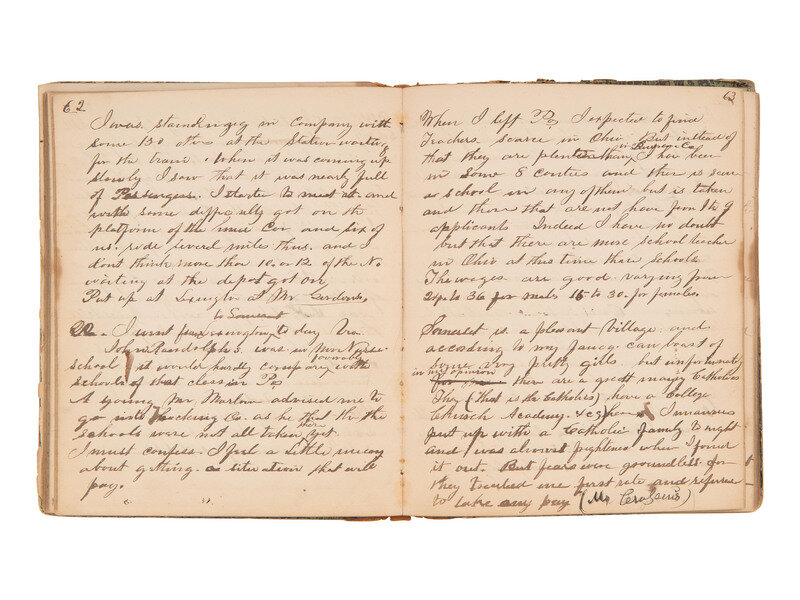 62
I was standing in Company with
some 130 others at the Station waiting
for the train. When it was coming up
slowly I saw that it was nearly full
of Passengers. I started to meet it and
with some difficulty got on the
platform of the Car and six of
us rode several mile thus. and I
dont think more than 10 or 12 of the No
waiting at the depot got on
Put up at at Mr
to Somerset
22. I went from to day
John Randolphs. was in
favorably
school it would hardly compare with
schools of that class in Pa
A young Mr. Marlow advised me to
go into Hocking Co. as he that the
there
schools were not all taken yet.
I must confess I feel a little uneasy
about getting a situation that will
pay.
63
When I left Pa I expected to find
Teachers scarce in Ohio But instead of
in Co
that they are plenty I have been
in some 5 conties and ther is scarce
a school in any of them but is taken
and those that are not have from 1 to 9
applicants Indeed I have no doubt
but that there are more school teacher
in Ohio at this time than schools
The wages are good varying from
24 to 36 for males 15 to 30. for females.
Somerset is a pleasant Village and
according to my fancy can boast of
some very pretty girls. but unfortunately
in my opinion
for there are a great many Catholics
They (that is the Catholics) have a College
Church Academy. &c I
put up with a Catholic family to night
and was almost frightened when I found
it out. But fears were groundless for
they treated me first rate and refused
to take any pay (Mr )